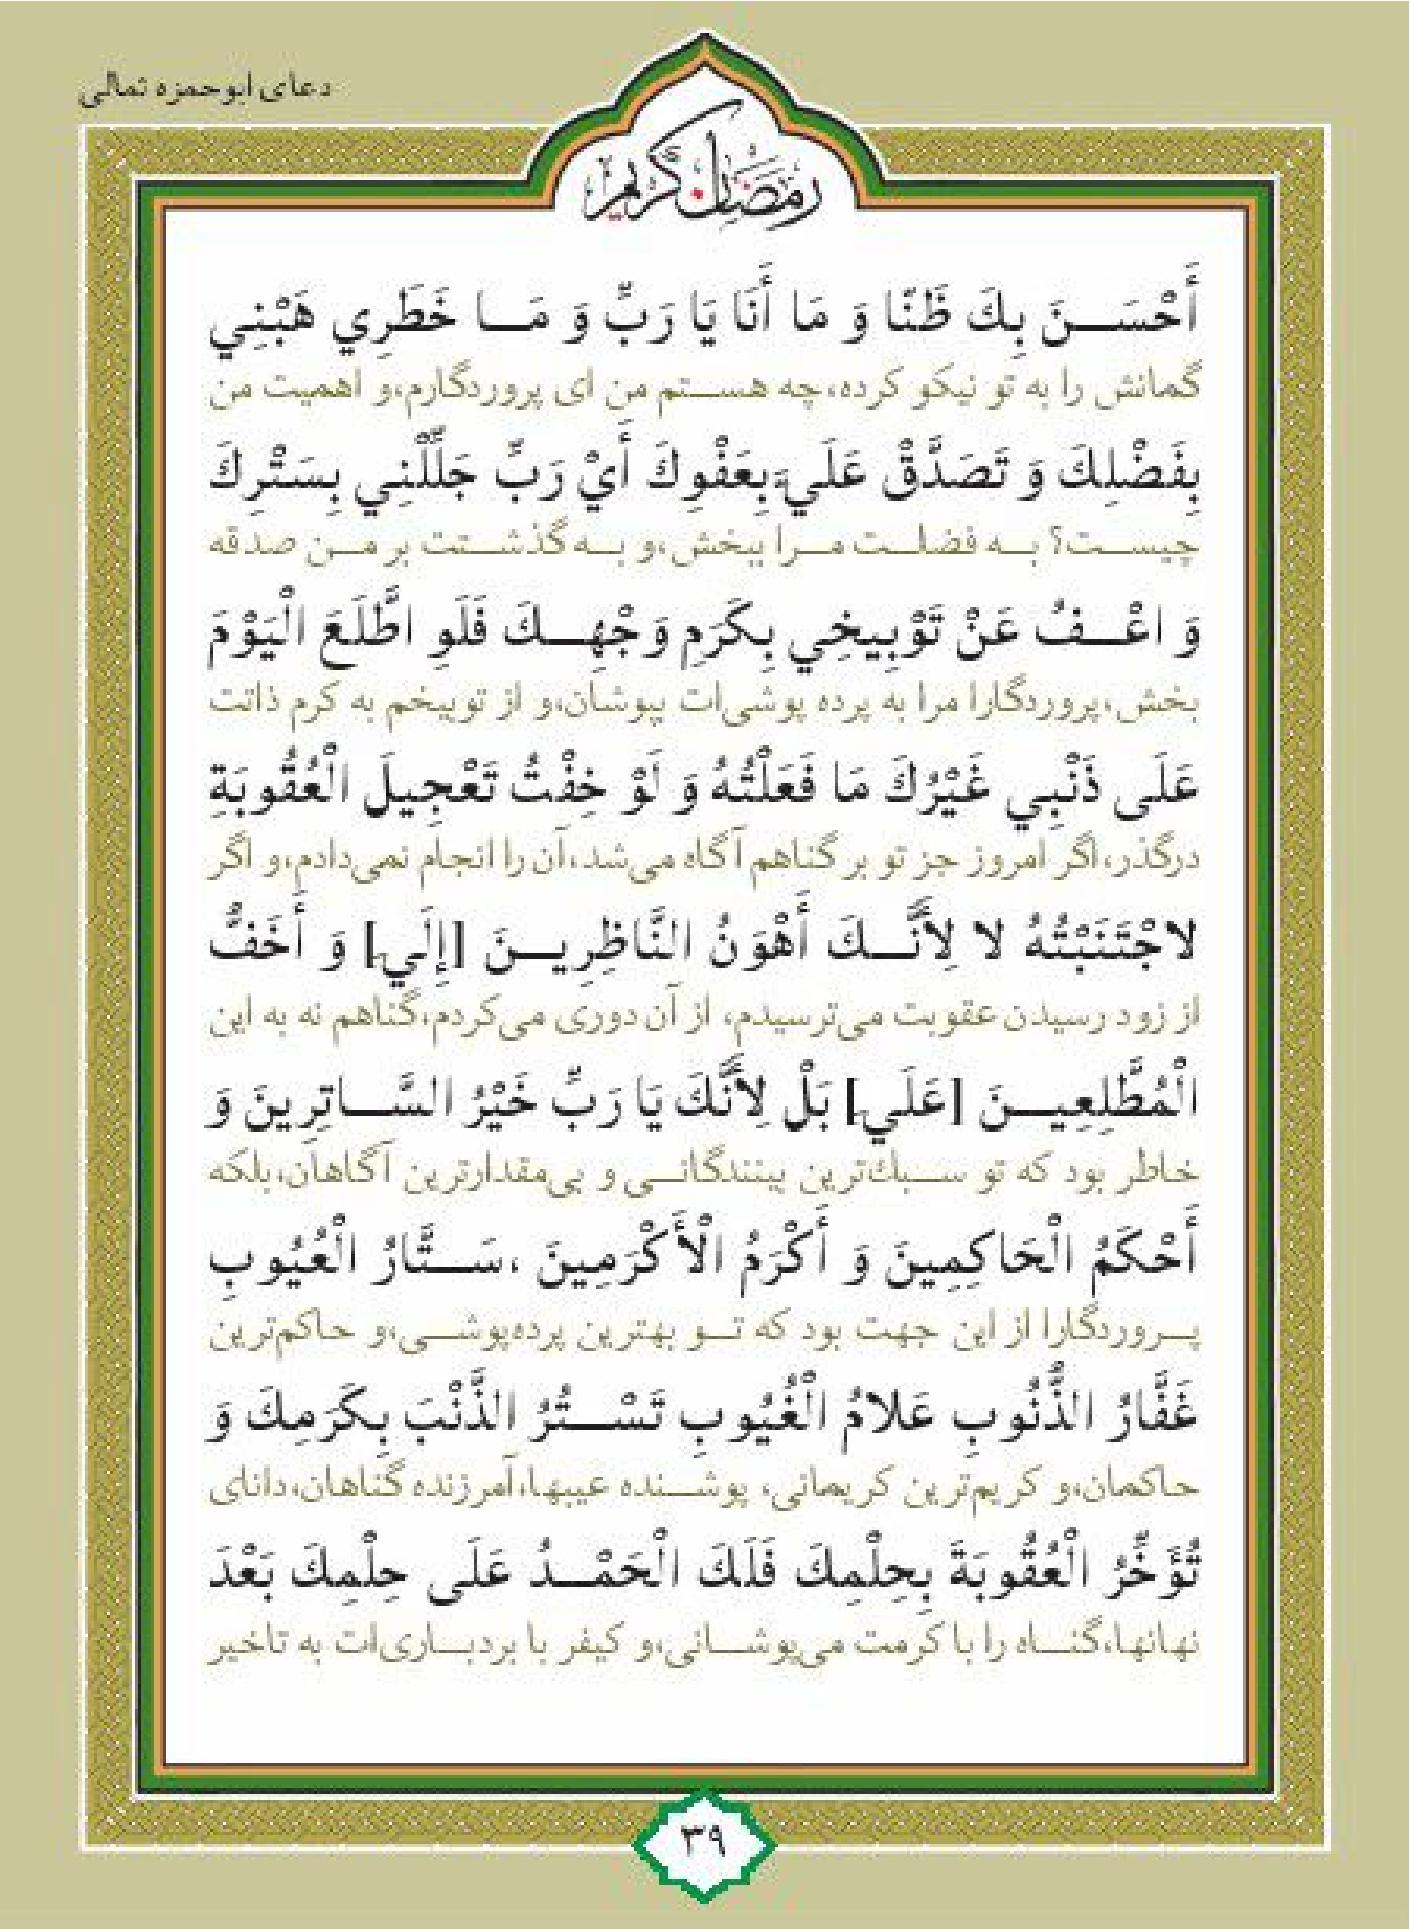 دعای ابوحمزه ثمالی
رمضان کریم
أَحْسَنَ بِكَ ظَنّا وَ مَا أَنَا يَا رَبِّ وَ مَا خَطَرِي هَبْنِي
گمانش را به تو نیکو کرده،چه هستم من ای پروردگارم،و اهمیت من
بِفَضْلِكَ وَ تَصَدَّقْ عَلَيَّ بِعَفْوِكَ أَيْ رَبِّ جَلِّلْنِي بِسَتْرِكَ
چیست؟ به فضلت مرا ببخش،و به گذشتت بر من صدقه
وَ اعْفُ عَنْ تَوْبِيخِي بِكَرَمِ وَجْهِكَ فَلَوِ اطَّلَعَ الْيَوْمَ
بخش،پروردگارا مرا به پرده پوشی‌ات بپوشان،و از توبیخم به کرم ذاتت
عَلَى ذَنْبِي غَيْرُكَ مَا فَعَلْتُهُ وَ لَوْ خِفْتُ تَعْجِيلَ الْعُقُوبَةِ
درگذر،اگر امروز جز تو بر گناهم آگاه می‌شد،آن را انجام نمی‌دادم،و اگر
لاجْتَنَبْتُهُ لا لِأَنَّكَ أَهْوَنُ النَّاظِرِينَ [إِلَيَ] وَ أَخَفُّ
از زود رسیدن عقوبت می‌ترسیدم، از آن دوری می‌کردم،گناهم نه به این
الْمُطَّلِعِينَ [عَلَيَ] بَلْ لِأَنَّكَ يَا رَبِّ خَيْرُ السَّاتِرِينَ وَ
خاطر بود که تو سبك‌ترین بینندگانی و بی‌مقدارترین آگاهان،بلکه
أَحْكَمُ الْحَاكِمِينَ وَ أَكْرَمُ الْأَكْرَمِينَ ،سَتَّارُ الْعُيُوبِ
پروردگارا از این جهت بود که تو بهترین پرده‌پوشی،و حاکم‌ترین
غَفَّارُ الذُّنُوبِ عَلامُ الْغُيُوبِ تَسْتُرُ الذَّنْبَ بِكَرَمِكَ وَ
حاکمان،و کریم‌ترین کریمانی، پوشنده عیبها،آمرزنده گناهان،دانای
تُؤَخِّرُ الْعُقُوبَةَ بِحِلْمِكَ فَلَكَ الْحَمْدُ عَلَى حِلْمِكَ بَعْدَ
نهانها،گناه را با کرمت می‌پوشانی،و کیفر با بردباری‌ات به تاخیر
۳۹